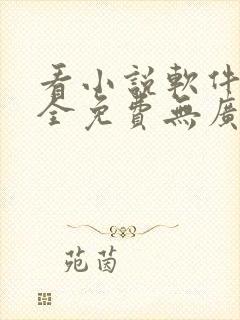 看小說軟件
全免費無廣
苑茵